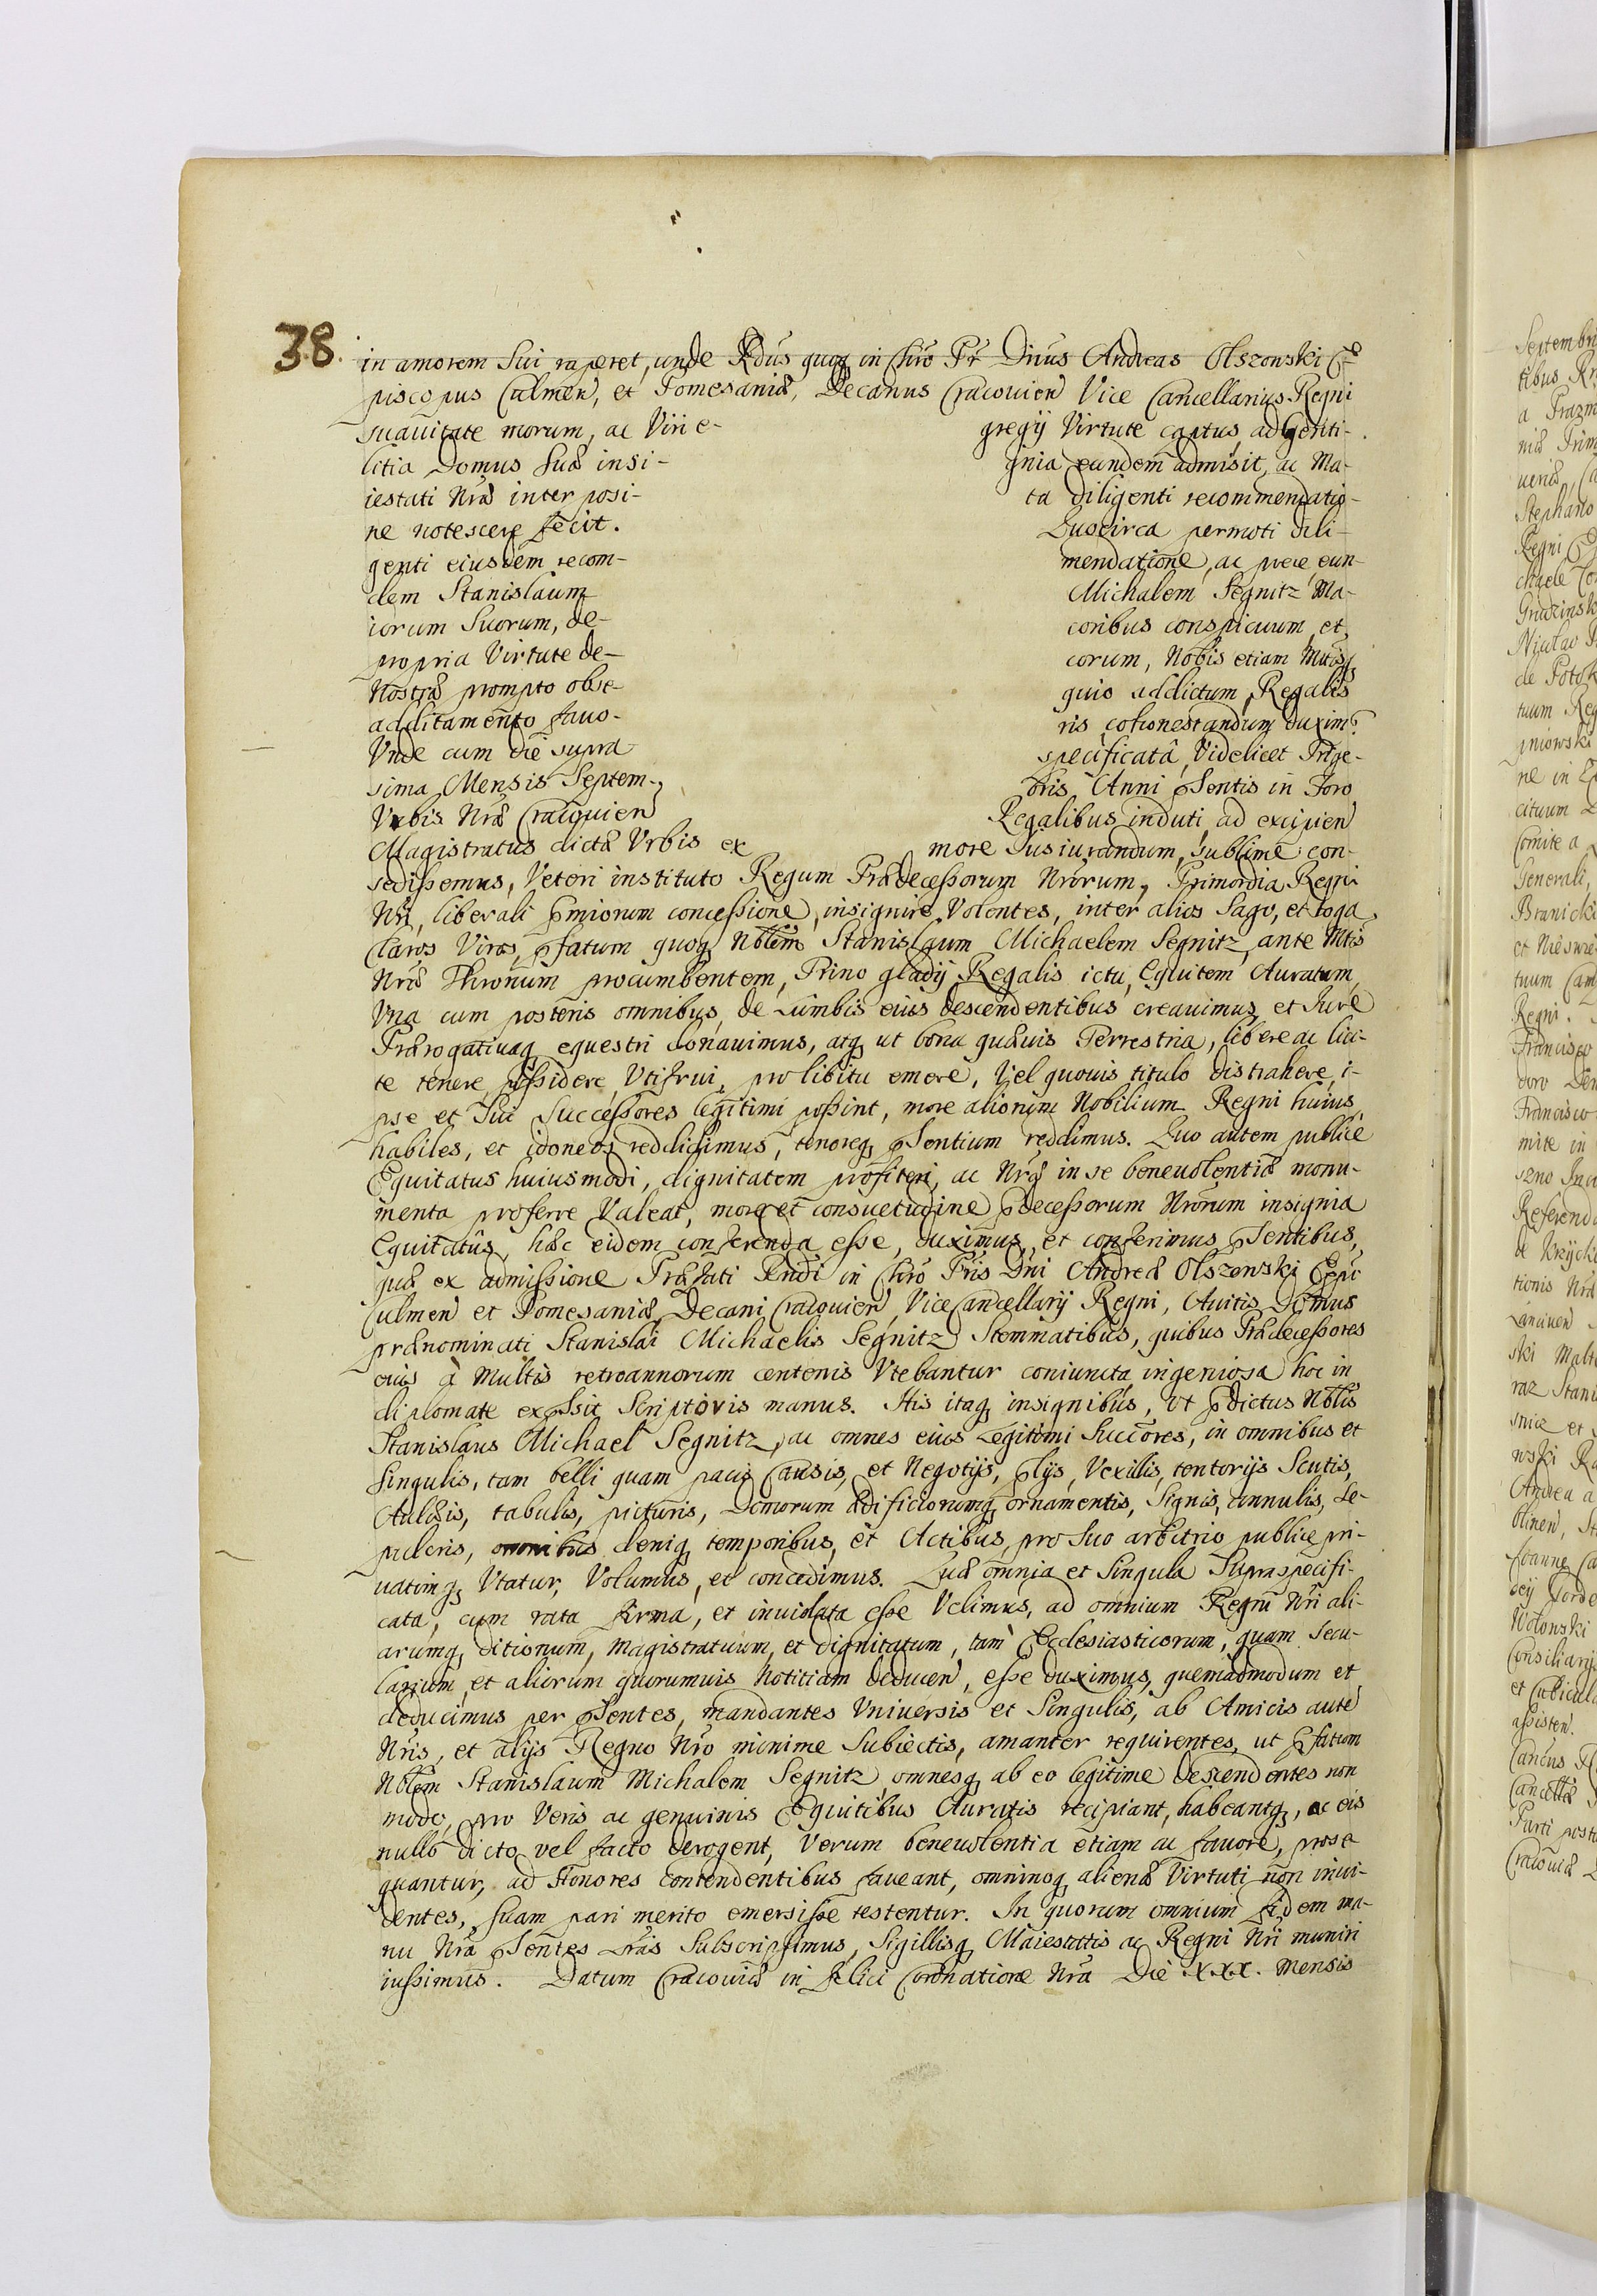 38.
in amorem Sui raperet, unde Rdus quoq in Chro Pr Dnus Andreas Olszowski E-
piscopus Culmen, et Pomesaniæ, Decanus Cracouien Vice Cancellarius Regni
suauitate morum, ac Viri e- gregij Virtute captus, ad Genti-
litia Domus Suæ insi- gnia eundem admisit, ac Ma-
iestati Nræ inter posi- ta diligenti recommendatio-
ne notescere fecit. Quocirca permoti dili-
genti eiusdem recom- mendatione, ac prece eun-
dem Stanislaum Michalem Segnitz Ma-
iorum Suorum, de- coribus conspicuum, et
propria Virtute de- corum, Nobis etiam Mtisq
Nostræ prompto obse- quio addictum, Regalis
additamento fauo- ris cohonestandum duxim9
Vnde cum die supra specificatâ, Videlicet Trige-
sima Mensis Septem- bris Anni pSentis in Foro
Vrbis Nræ Cracouien Regalibus induti, ad excipien
Magistratus dictæ Vrbis ex more Iusiurandum, Sublime con-
sedissemus, Veteri instituto Regum Prædecessorum Nrorum, Primordia Regni
Nri, liberali pmiorum concessione, insignire Volentes, inter alios Sago, et toga
Claros Viros, pfatum quoq Nblem Stanislaum Michaelem Segnitz ante Mtis
Nræ Thronum procumbentem, Trino gladij Regalis ictu, Equitem Auratum,
Vna cum posteris omnibus, de Lumbis eius descendentibus creauimus, et Iure
Prærogatiuaq equestri donauimus, atq ut bona quæuis Terrestria, libere ac lici-
te tenere, possidere, Vti frui, pro libitu emere, Vel quouis titulo distrahere, i-
pse et Sui Successores legitimi possint, more aliorum Nobilium Regni huius
habiles, et idoneos reddidimus, tenoreq pSentium reddimus. Quo autem publice
Equitatus huiusmodi, dignitatem profiteri, ac Nræ in se beneuolentiæ monu-
menta proferre Valeat, more et consuetudine pdecessorum Nrorum insignia
Equitatûs, hæc eidem conferenda esse, duximus, et conferimus pSentibus,
quæ ex admissione Præfati Rndi in Chro Pris Dni Andreæ Olszewski Eppi
Culmen et Pomesaniæ, Decani Cracouien, Vice Cancellarij Regni, Auitis Domus
prænominati Stanislai Michaelis Segnitz Stemmatibus, quibus Prædecessores
eius à Multis retroannorum centenis Vtebantur coniuncta ingeniosa hoc in
diplomate expssit Scriptoris manus. His itaq insignibus, Vt pdictus Nblis
Stanislaus Michael Segnitz, ac omnes eius Legitimi Succores, in omnibus et
Singulis, tam belli quam pacis Causis, et Negotijs, plijs, Vexillis, tentorijs Scutis,
Aulæis, tabulis, picturis, Domorum ædificiorumq ornamentis, Signis, annulis, Se-
pulcris, omnibus deniq temporibus, et Actibus, pro Suo arbitrio publice pri-
uatimq Vtatur, Volumus, et concedimus. Quæ omnia et Singula Supra specifi-
cata, cum rata firma, et inuiolata esse Velimus, ad omnium Regni Nri ali-
arumq ditionum, Magistratuum, et Dignitatum, tam Ecclesiasticorum, quam Secu-
larium, et aliorum quorumuis Notitiam deducen, esse duximus, quemadmodum et
deducimus per pSentes, mandantes Vniuersis et Singulis, ab Amicis aute
Nris, et alijs Regno Nro minime Subiectis, amanter requirentes, ut pfatum
Nblem Stanislaum Michalem Segnitz omnesq ab eo legitime descendentes non
modo, pro Veris ac genuinis Equitibus Auratis recipiant, habeantq, ac eis
nullo dicto vel facto derogent, Verum beneuolentia etiam ac fauore, prose
quantur, ad Honores Contendentibus faueant, omninoq alienæ Virtuti non inui-
dentes, Suam pari merito emersisse testentur. In quorum omnium fidem ma-
nu Nra pSentes Lras Subscripsimus, Sigillisq Maiestatis ac Regni Nri muniri
iussimus. Datum Cracouiæ in felici Coronatione Nra Die XXX. Mensis